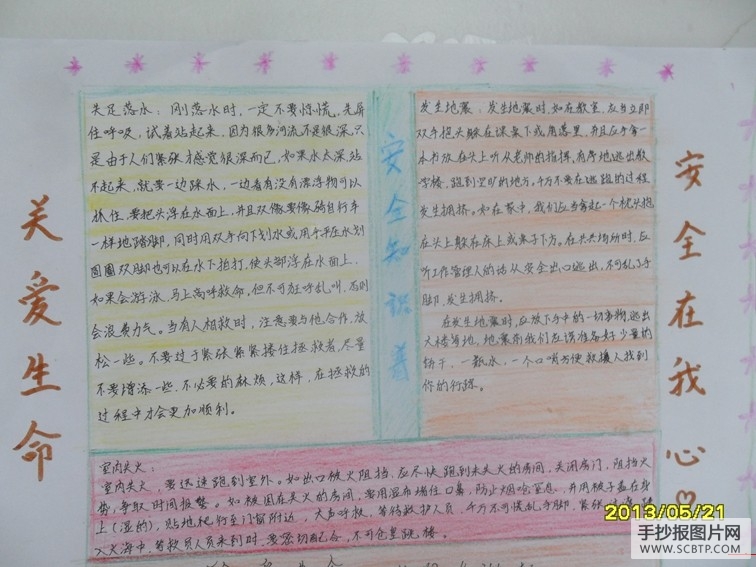 关爱生命
失足落水：刚落水时，一定不要惊慌，先屏
住呼吸，试着站起来，因为很多河流不是很深，只
是由于人们紧张才感觉很深而已，如果水太深站
不起来，就要一边踩水，一边看有没有漂浮物可以
抓住，要把头浮在水面上，并且双像要像骑自行车
一样地踏脚，同时用双手向下划水或用手平压水划
圆圈双脚也可以在水下拍打，使头部浮在水面上，
如果会游泳，马上高呼救命，但不可狂呼乱叫，否则
会浪费力气。当有人相救时，注意要与他合作，放
松一些。不要过于紧张，紧紧搂住拯救者，尽量
不要增添一些，不必要的麻烦，这样，在拯救的
过程中才会更加顺利。
安全知识着
发生地震：发生地震时，如在教室，应当立即
双手抱头躲在课桌下或角落里，并且应手拿一
本书放在头上听从老师的指挥，有序地逃出教
学楼，跑到空旷的地方。千万不要在逃跑的过程
发生拥挤。如在家中，我们应当拿起一个枕头抱
在头上躲在床上或桌子下方。在公共场所时，应
听工作管理人的话从安全出口逃出，不可乱了手
脚，发生拥挤。
在发生地震时，应放下手中的一切事物，逃出
大楼等地，地震前我们应该准备好少量的
饼干，一瓶水，一个口哨方便救援人找到
你的行踪。
安全在我心
室内失火：
室内失火，要迅速跑到室外。如出口被火阻挡，应尽快跑到未失火的房间，关闭房门，阻挡火
势，争取时间报警。如被困在失火的房间，要用湿布堵住口鼻，防止烟呛窒息，并用被子盖在身
上（湿的），贴地爬行至门窗附近，大声呼救，等待救护人员，千万不可慌乱手脚，紧张
入火海中，等救员人员来到时，要密切配合，不可仓皇跳楼。
2013/05/21
手抄报图片网
WWW.SCBTP.COM